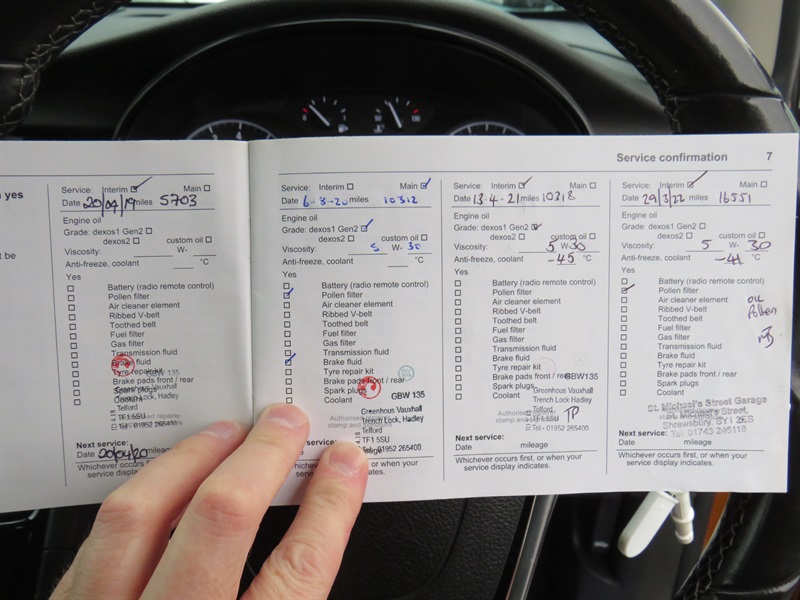 n yes
t be
Service confirmation 7
Service: Interim Main
Date 20/04/19 miles 5703
Engine oil
Grade: dexos1 Gen2
dexos2 custom oil
Viscosity: W-
Anti-freeze, coolant °C
Yes
Battery (radio remote control)
Pollen filter
Air cleaner element
Ribbed V-belt
Toothed belt
Fuel filter
Gas filter
Transmission fluid
Brake fluid
Tyre repair kit
Brake pads front / rear
Spark plugs
Coolant
GBW 135
Greenhous Vauxhall
Trench Lock, Hadley
Telford
TF1 5SU
Tel: 01952 265400
Next service:
Date 20/04/20 mileage
Whichever occurs first, or when your
service display indicates.
Service: Interim Main
Date 6-8-20 miles 10312
Engine oil
Grade: dexos1 Gen2
dexos2 custom oil
Viscosity: 5 W- 30
Anti-freeze, coolant °C
Yes
Battery (radio remote control)
Pollen filter
Air cleaner element
Ribbed V-belt
Toothed belt
Fuel filter
Gas filter
Transmission fluid
Brake fluid
Tyre repair kit
Brake pads front / rear
Spark plugs
Coolant
GBW 135
Greenhous Vauxhall
Trench Lock, Hadley
Telford
TF1 5SU
Tel: 01952 265400
Whichever occurs first, or when your
service display indicates.
Service: Interim Main
Date 13-4-21 miles 10318
Engine oil
Grade: dexos1 Gen2
dexos2 custom oil
Viscosity: 5 W- 30
Anti-freeze, coolant -45 °C
Yes
Battery (radio remote control)
Pollen filter
Air cleaner element
Ribbed V-belt
Toothed belt
Fuel filter
Gas filter
Transmission fluid
Brake fluid
Tyre repair kit
Brake pads front / rear
Spark plugs
Coolant
GBW135
Greenhous Vauxhall
Trench Lock, Hadley
Telford
TF1 5SU
Tel: 01952 265400
TP
Next service:
Date mileage
Whichever occurs first, or when your
service display indicates.
Service: Interim Main
Date 29/3/22 miles 16551
Engine oil
Grade: dexos1 Gen2
dexos2 custom oil
Viscosity: 5 W- 30
Anti-freeze, coolant -41 °C
Yes
Battery (radio remote control)
Pollen filter
Air cleaner element
Ribbed V-belt
Toothed belt
Fuel filter
Gas filter
Transmission fluid
Brake fluid
Tyre repair kit
Brake pads front / rear
Spark plugs
Coolant
oil
Pollen
St. Michael's Street Garage
St. Michael's Street,
Shrewsbury. SY1 2ES
Tel: 01743 245118
Next service:
Date mileage
Whichever occurs first, or when your
service display indicates.